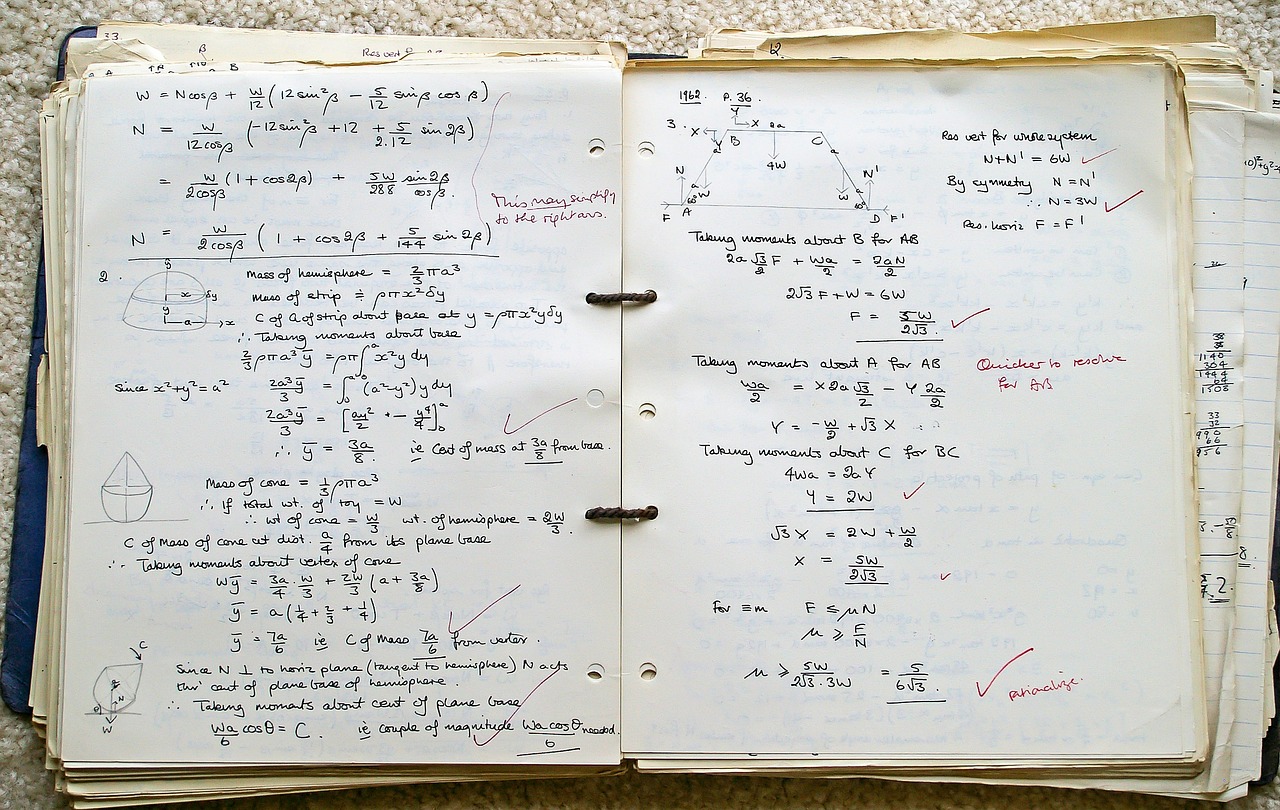 33.
β
Res vert
B
W = Ncosβ + W/12 (12sin²β − 5/12 sinβ cosβ)
N = W/12cosβ (−12sin²β + 12 + 5/2.12 sin2β)
= W/2cosβ (1 + cos2β) + 5W/288 sin2β/cosβ.
This may simplify
to the right ans.
N = W/2cosβ (1 + cos2β + 5/144 sin2β)
2.
y
x δy
y
a x
Mass of hemisphere = 2/3 πa³
Mass of strip ≑ ρπx²δy
C of G of strip about base at y = ρπx²yδy
∴ Taking moments about base
2/3 ρπa³ȳ = ρπ∫₀ᵃ x²y dy
Since x²+y² = a² 2a³ȳ/3 = ∫₀ᵃ (a²−y²)y dy
2a³ȳ/3 = [ay²/2 − y⁴/4]₀ᵃ
∴ ȳ = 3a/8 ie Cent of mass at 3a/8 from base.
Mass of cone = 1/3 ρπa³
∴ If total wt. of toy = W
∴ wt of cone = W/3 wt. of hemisphere = 2W/3.
C of Mass of cone at dist. a/4 from its plane base
∴ Taking moments about vertex of cone
Wȳ = 3a/4 . W/3 + 2W/3 (a + 3a/8)
ȳ = a(1/4 + 2/3 + 1/4)
ȳ = 7a/6 ie C of Mass 7a/6 from vertex.
C
N
θ
W
Since N ⊥ to horiz plane (tangent to hemisphere) N acts
thro' cent of plane base of hemisphere.
∴ Taking moments about cent of plane base
Wa/6 cosθ = C. ie couple of magnitude Wa cosθ/6 needed.
1962. P. 36.
3. X Y X 2a
B C
a a
4W
N W W N'
a a
60° 60°
F A D F'
Res vert for whole system
N+N' = 6W
By symmetry N = N'
∴ N = 3W
Res. horiz F = F'
Taking moments about B for AB
2a √3/2 F + Wa/2 = 2aN/2
2√3 F + W = 6W
F = 5W/2√3.
Taking moments about A for AB
Quicker to resolve
for AB
Wa/2 = X2a √3/2 − Y 2a/2
Y = −W/2 + √3 X
Taking moments about C for BC
4Wa = 2aY
Y = 2W
√3 X = 2W + W/2
X = 5W/2√3
For ≡m F ≤ μN
μ ≥ F/N
μ ≥ 5W/2√3.3W = 5/6√3.
rationalize.
38
38
1140
304
1444
64
1508
33
32
990
66
956